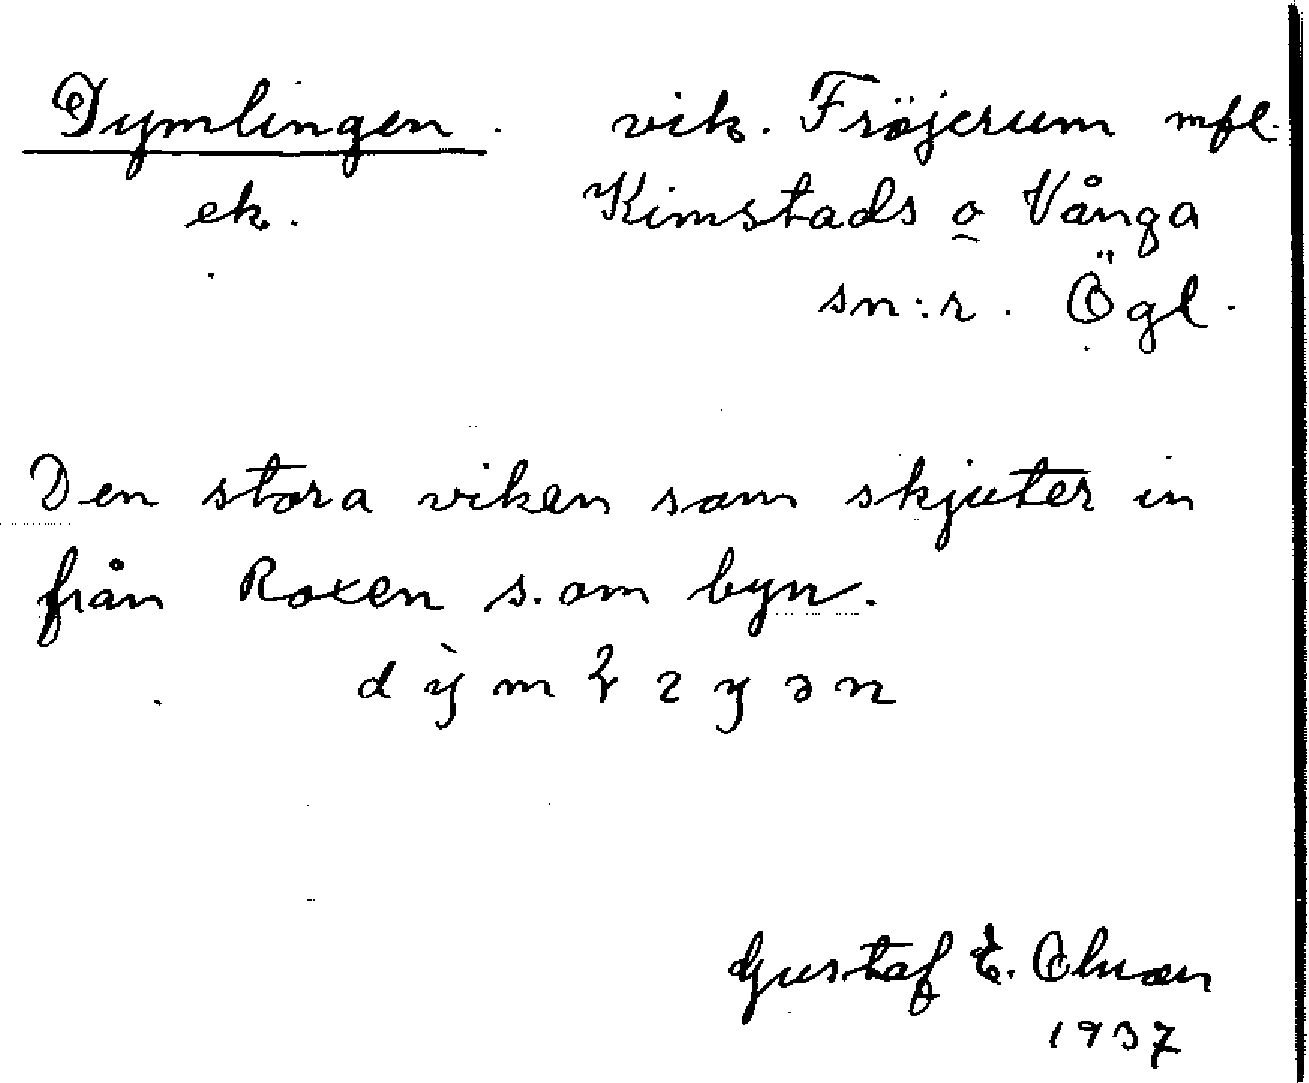 Dymlingen. vik. Fröjerum mfl.
ek. Kimstads o Vånga
sn:r. Ögl.
Den stora viken som skjuter in
från Roxen s. om byn.
Gustaf E. Olsson
1937